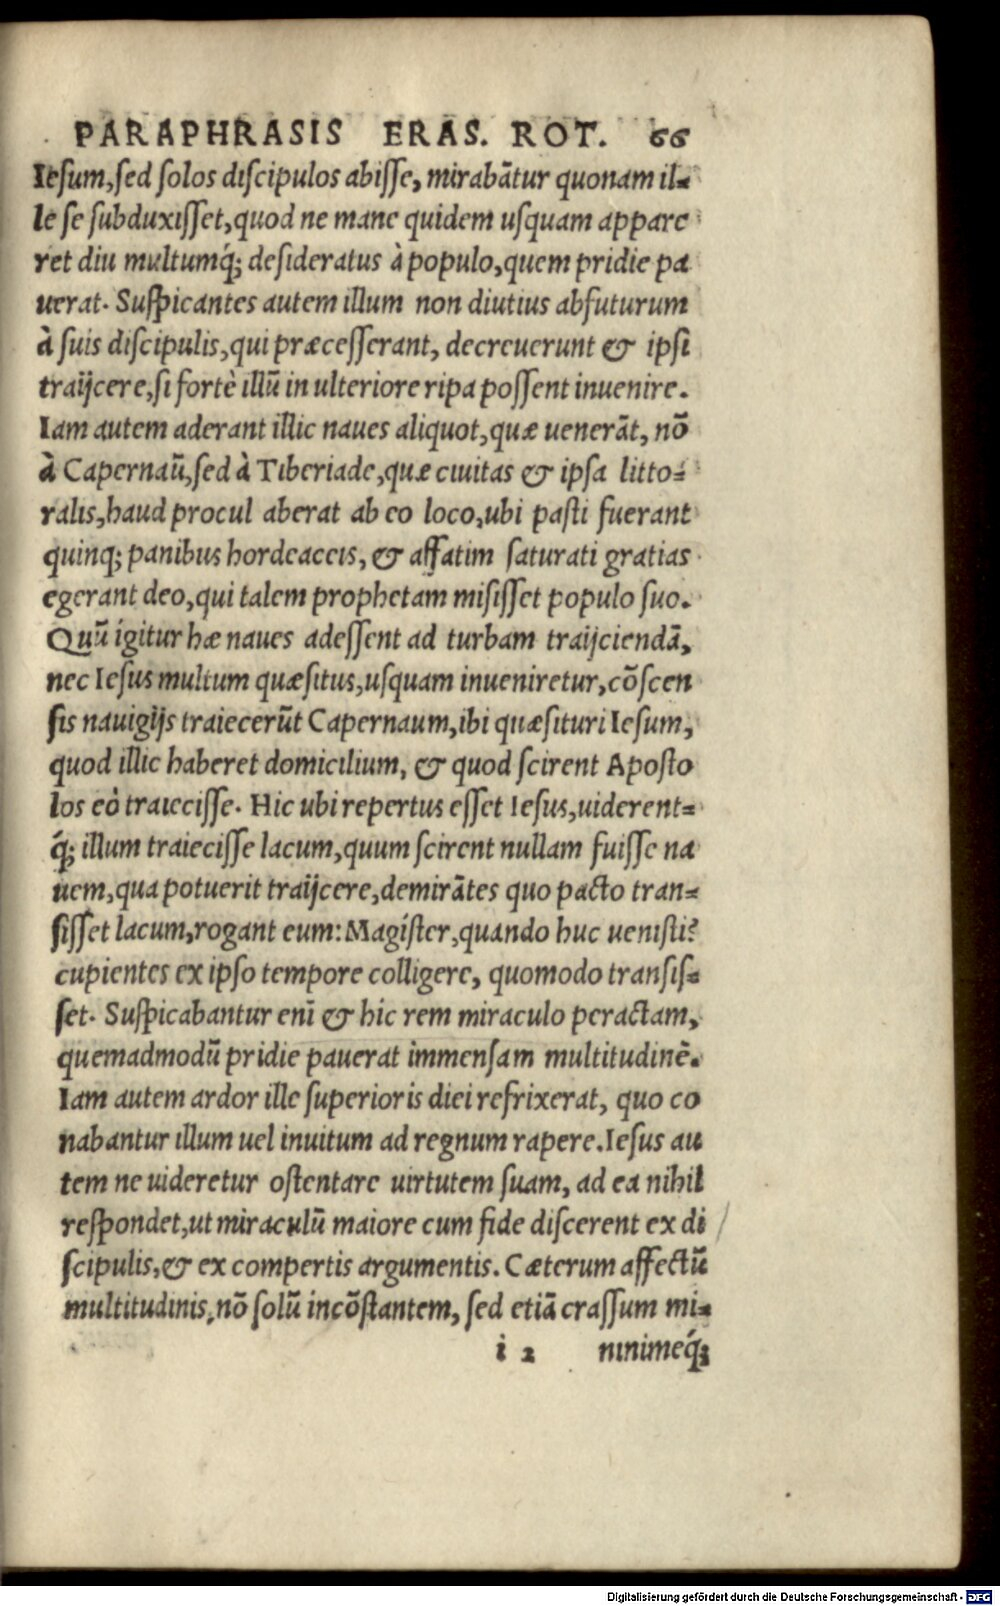 PARAPHRASIS ERAS. ROT. 66
Iesum,sed solos discipulos abisse, mirabãtur quonam il-
le se subduxisset,quod ne mane quidem usquam appare
ret diu multumq́; desideratus à populo,quem pridie pa
uerat. Suspicantes autem illum non diutius abfuturum
à suis discipulis,qui præcesserant, decreuerunt & ipsi
traijcere,si fortè illũ in ulteriore ripa possent inuenire.
Iam autem aderant illic naues aliquot,quæ uenerãt, nõ
à Capernaũ,sed à Tiberiade,quæ ciuitas & ipsa litto-
ralis,haud procul aberat ab eo loco,ubi pasti fuerant
quinq; panibus hordeaceis, & affatim saturati gratias
egerant deo,qui talem prophetam misisset populo suo.
Quũ igitur hæ naues adessent ad turbam traijciendã,
nec Iesus multum quæsitus,usquam inueniretur,cõscen
sis nauigijs traiecerũt Capernaum,ibi quæsituri Iesum,
quod illic haberet domicilium, & quod scirent Aposto
los eò traiecisse. Hic ubi repertus esset Iesus,uiderent-
q́; illum traiecisse lacum,quum scirent nullam fuisse na
uem,qua potuerit traijcere,demirãtes quo pacto tran-
sisset lacum,rogant eum: Magister,quando huc uenisti?
cupientes ex ipso tempore colligere, quomodo transis-
set. Suspicabantur enĩ & hic rem miraculo peractam,
quemadmodũ pridie pauerat immensam multitudinẽ.
Iam autem ardor ille superioris diei refrixerat, quo co
nabantur illum uel inuitum ad regnum rapere.Iesus au
tem ne uideretur ostentare uirtutem suam, ad ea nihil
respondet,ut miraculũ maiore cum fide discerent ex di
scipulis,& ex compertis argumentis. Cæterum affectũ
multitudinis,nõ solũ incõstantem, sed etiã crassum mi-
i 2 ninimeq́;
Digitalisierung gefördert durch die Deutsche Forschungsgemeinschaft - DFG